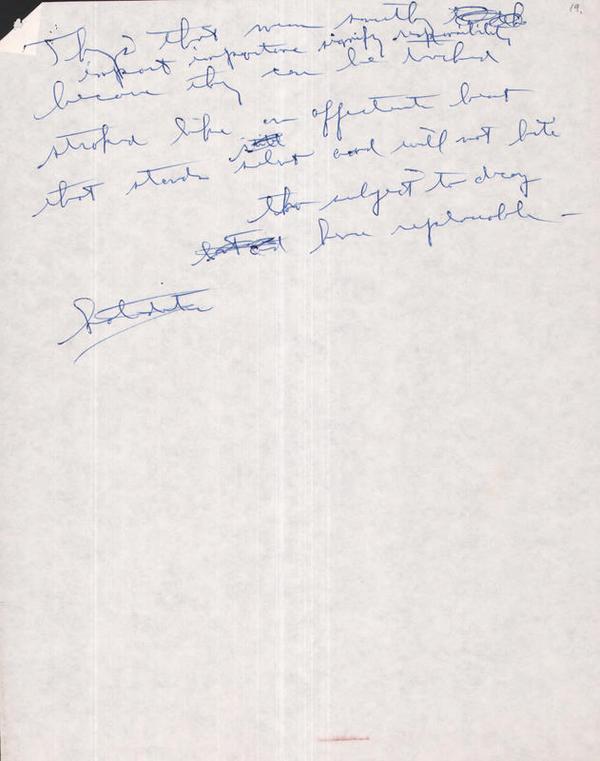 19.
Things that mean smally
import importance signify responsibility
because they can be
stroked like an affectionate beast
that stands silent and will not bite
tho subject to decay
hence replaceable —